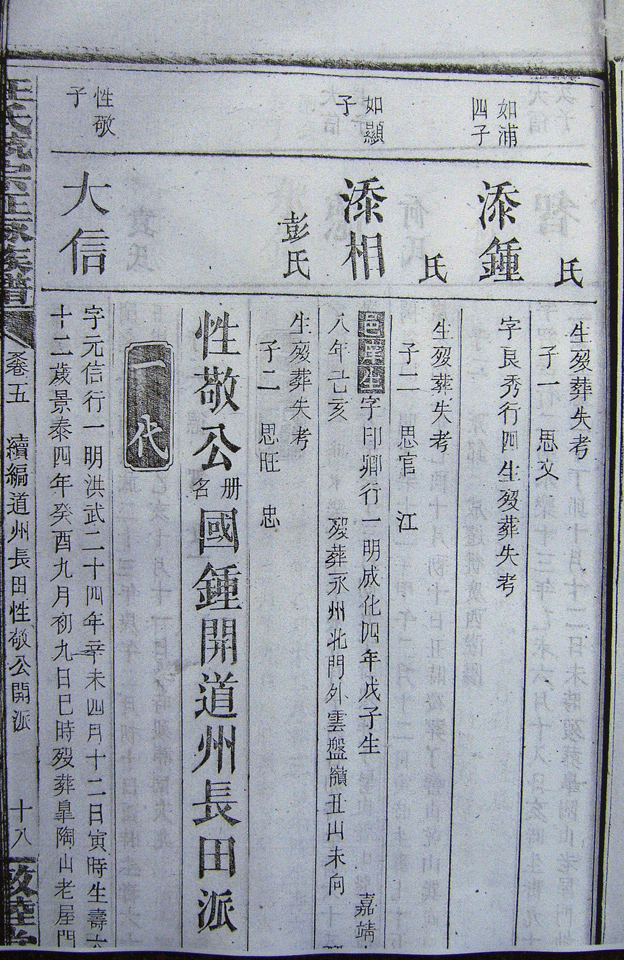 氏
生歿葬失考
子一 思文
如浦
四子
添鍾
字良秀行四生歿葬失考
氏
生歿葬失考
子二 思官 江
如顯
子
添相
邑庠生字印卿行一明成化四年戊子生 嘉靖
八年己亥 歿葬永州北門外雲盤嶺丑山未向
彭氏
生歿葬失考
子二 思旺 忠
性敬公册名國鍾開道州長田派
一代
性敬
子
大信
字元信行一明洪武二十四年辛未四月十二日寅時生壽六
十二歲景泰四年癸酉九月初九日巳時歿葬皐陶山老屋門
卷五 續編道州長田性敬公開派 十八